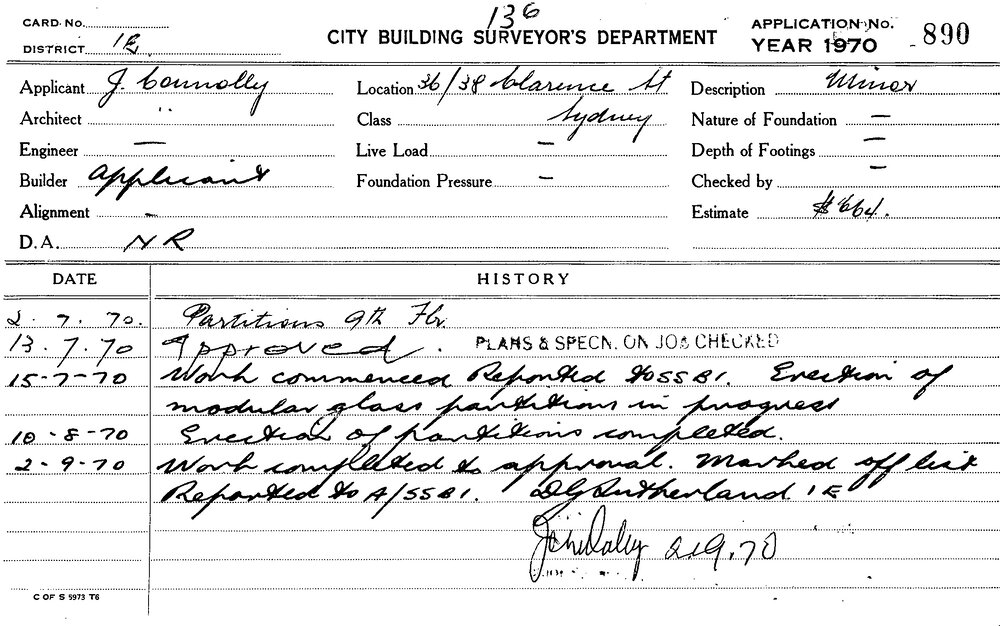 136
CARD No.
DISTRICT 1E
CITY BUILDING SURVEYOR'S DEPARTMENT
APPLICATION No. 890
YEAR 1970
Applicant J. Connolly
Location 36/38 Clarence St
Description Minor
Architect "
Class Sydney
Nature of Foundation —
Engineer —
Live Load —
Depth of Footings —
Builder Applicant
Foundation Pressure —
Checked by —
Alignment -
Estimate $664.
D.A. N R
DATE HISTORY
2. 7. 70. Partitions 9th Flr.
13. 7. 70 Approved. PLANS & SPECN. ON JOB CHECKED
15-7-70 Work commenced Reported to SSBI. Erection of
modular glass partitions in progress
10-8-70 Erection of partitions completed.
2-9-70 Work completed to approval. Marked off list
Reported to A/SSBI. DG Sutherland 1E
2.9.70
C OF S 5973 T6